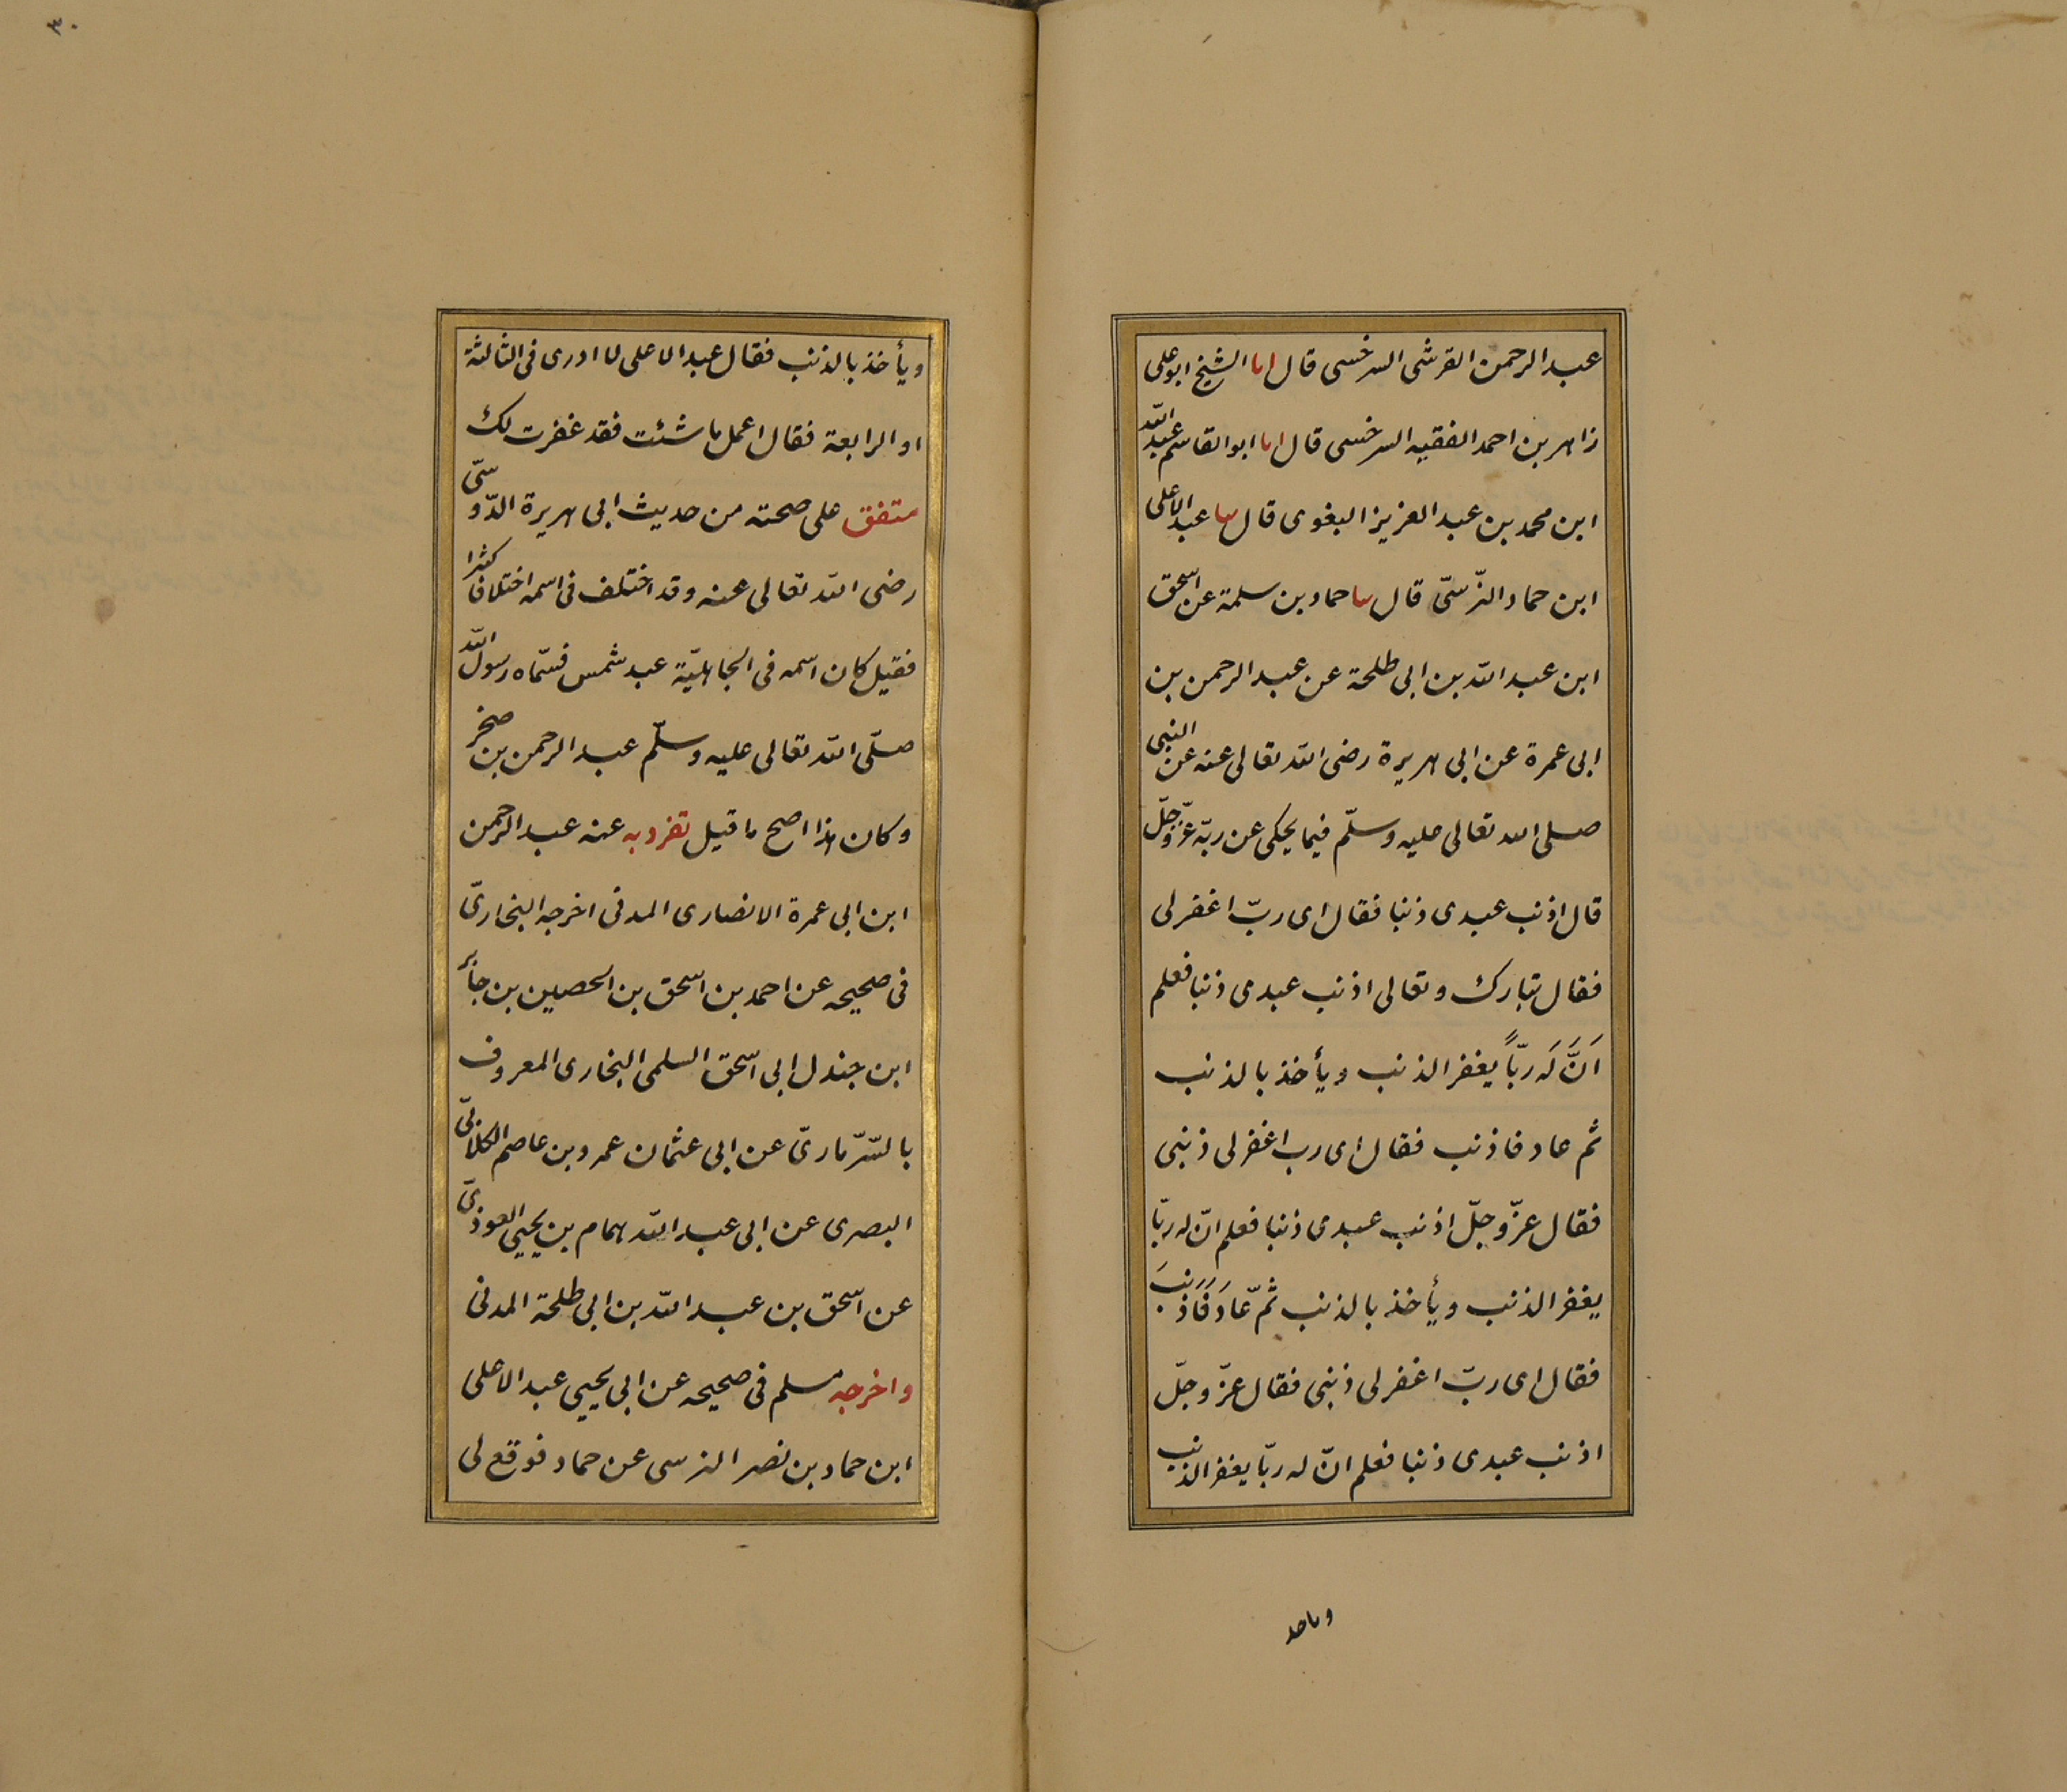 عبد الرحمن القرشى السرخسى قال انا الشيخ ابو على
زاهر بن احمد الفقيه السرخسى قال انا ابو القاسم عبد الله
ابن محمد بن عبد العزيز البغوى قال ثنا عبد الاعلى
ابن حماد النرّسىّ قال ثنا حماد بن سلمة عن اسحق
ابن عبد الله بن ابى طلحة عن عبد الرحمن بن
ابى عمرة عن ابى هريرة رضى الله تعالى عنه عن النبى
صلى الله تعالى عليه وسلّم فيما يحكى عن ربّه عزّ وجلّ
قال اذنب عبدى ذنبا فقال اى ربّ اغفر لى
فقال تبارك وتعالى اذنب عبدى ذنبا فعلم
اَنَّ لَه ربّاً يغفر الذنب ويأخذ بالذنب
ثم عاد فاذنب فقال اى رب اغفر لى ذنبى
فقال عزّ وجلّ اذنب عبدى ذنبا فعلم انّ له ربّا
يغفر الذنب ويأخذ بالذنب ثمّ عَادَ فَاَذنبَ
فقال اى ربّ اغفر لى ذنبى فقال عزّ وجلّ
اذنب عبدى ذنبا فعلم انّ له ربّا يغفر الذنب
وياخذ
٣٠
ويأخذ بالذنب فقال عبد الاعلى لا ادرى فى الثالثة
او الرابعة فقال اعمل ما شئت فقد غفرت لك
متفق على صحته من حديث ابى هريرة الدّوسىّ
رضى الله تعالى عنه وقد اختلف فى اسمه اختلافا كثرا
فقيل كان اسمه فى الجاهليّة عبد شمس فسّماه رسول الله
صلّى الله تعالى عليه وسلّم عبد الرحمن بن صخر
وكان هذا اصح ما قيل تفرد به عنه عبد الرحمن
ابن ابى عمرة الانصارى المدنى اخرجه البخارىّ
فى صحيحه عن احمد بن اسحق بن الحصين بن جابر
ابن جندل ابى اسحق السلمى البخارى المعروف
بالسّرّمارىّ عن ابى عثمان عمرو بن عاصم الكلابىّ
البصرى عن ابى عبد الله همام بن يحيى العوذىّ
عن اسحق بن عبد الله بن ابى طلحة المدنى
واخرجه مسلم فى صحيحه عن ابى يحيى عبد الاعلى
ابن حماد بن نصر النرسى عن حماد فوقع لى